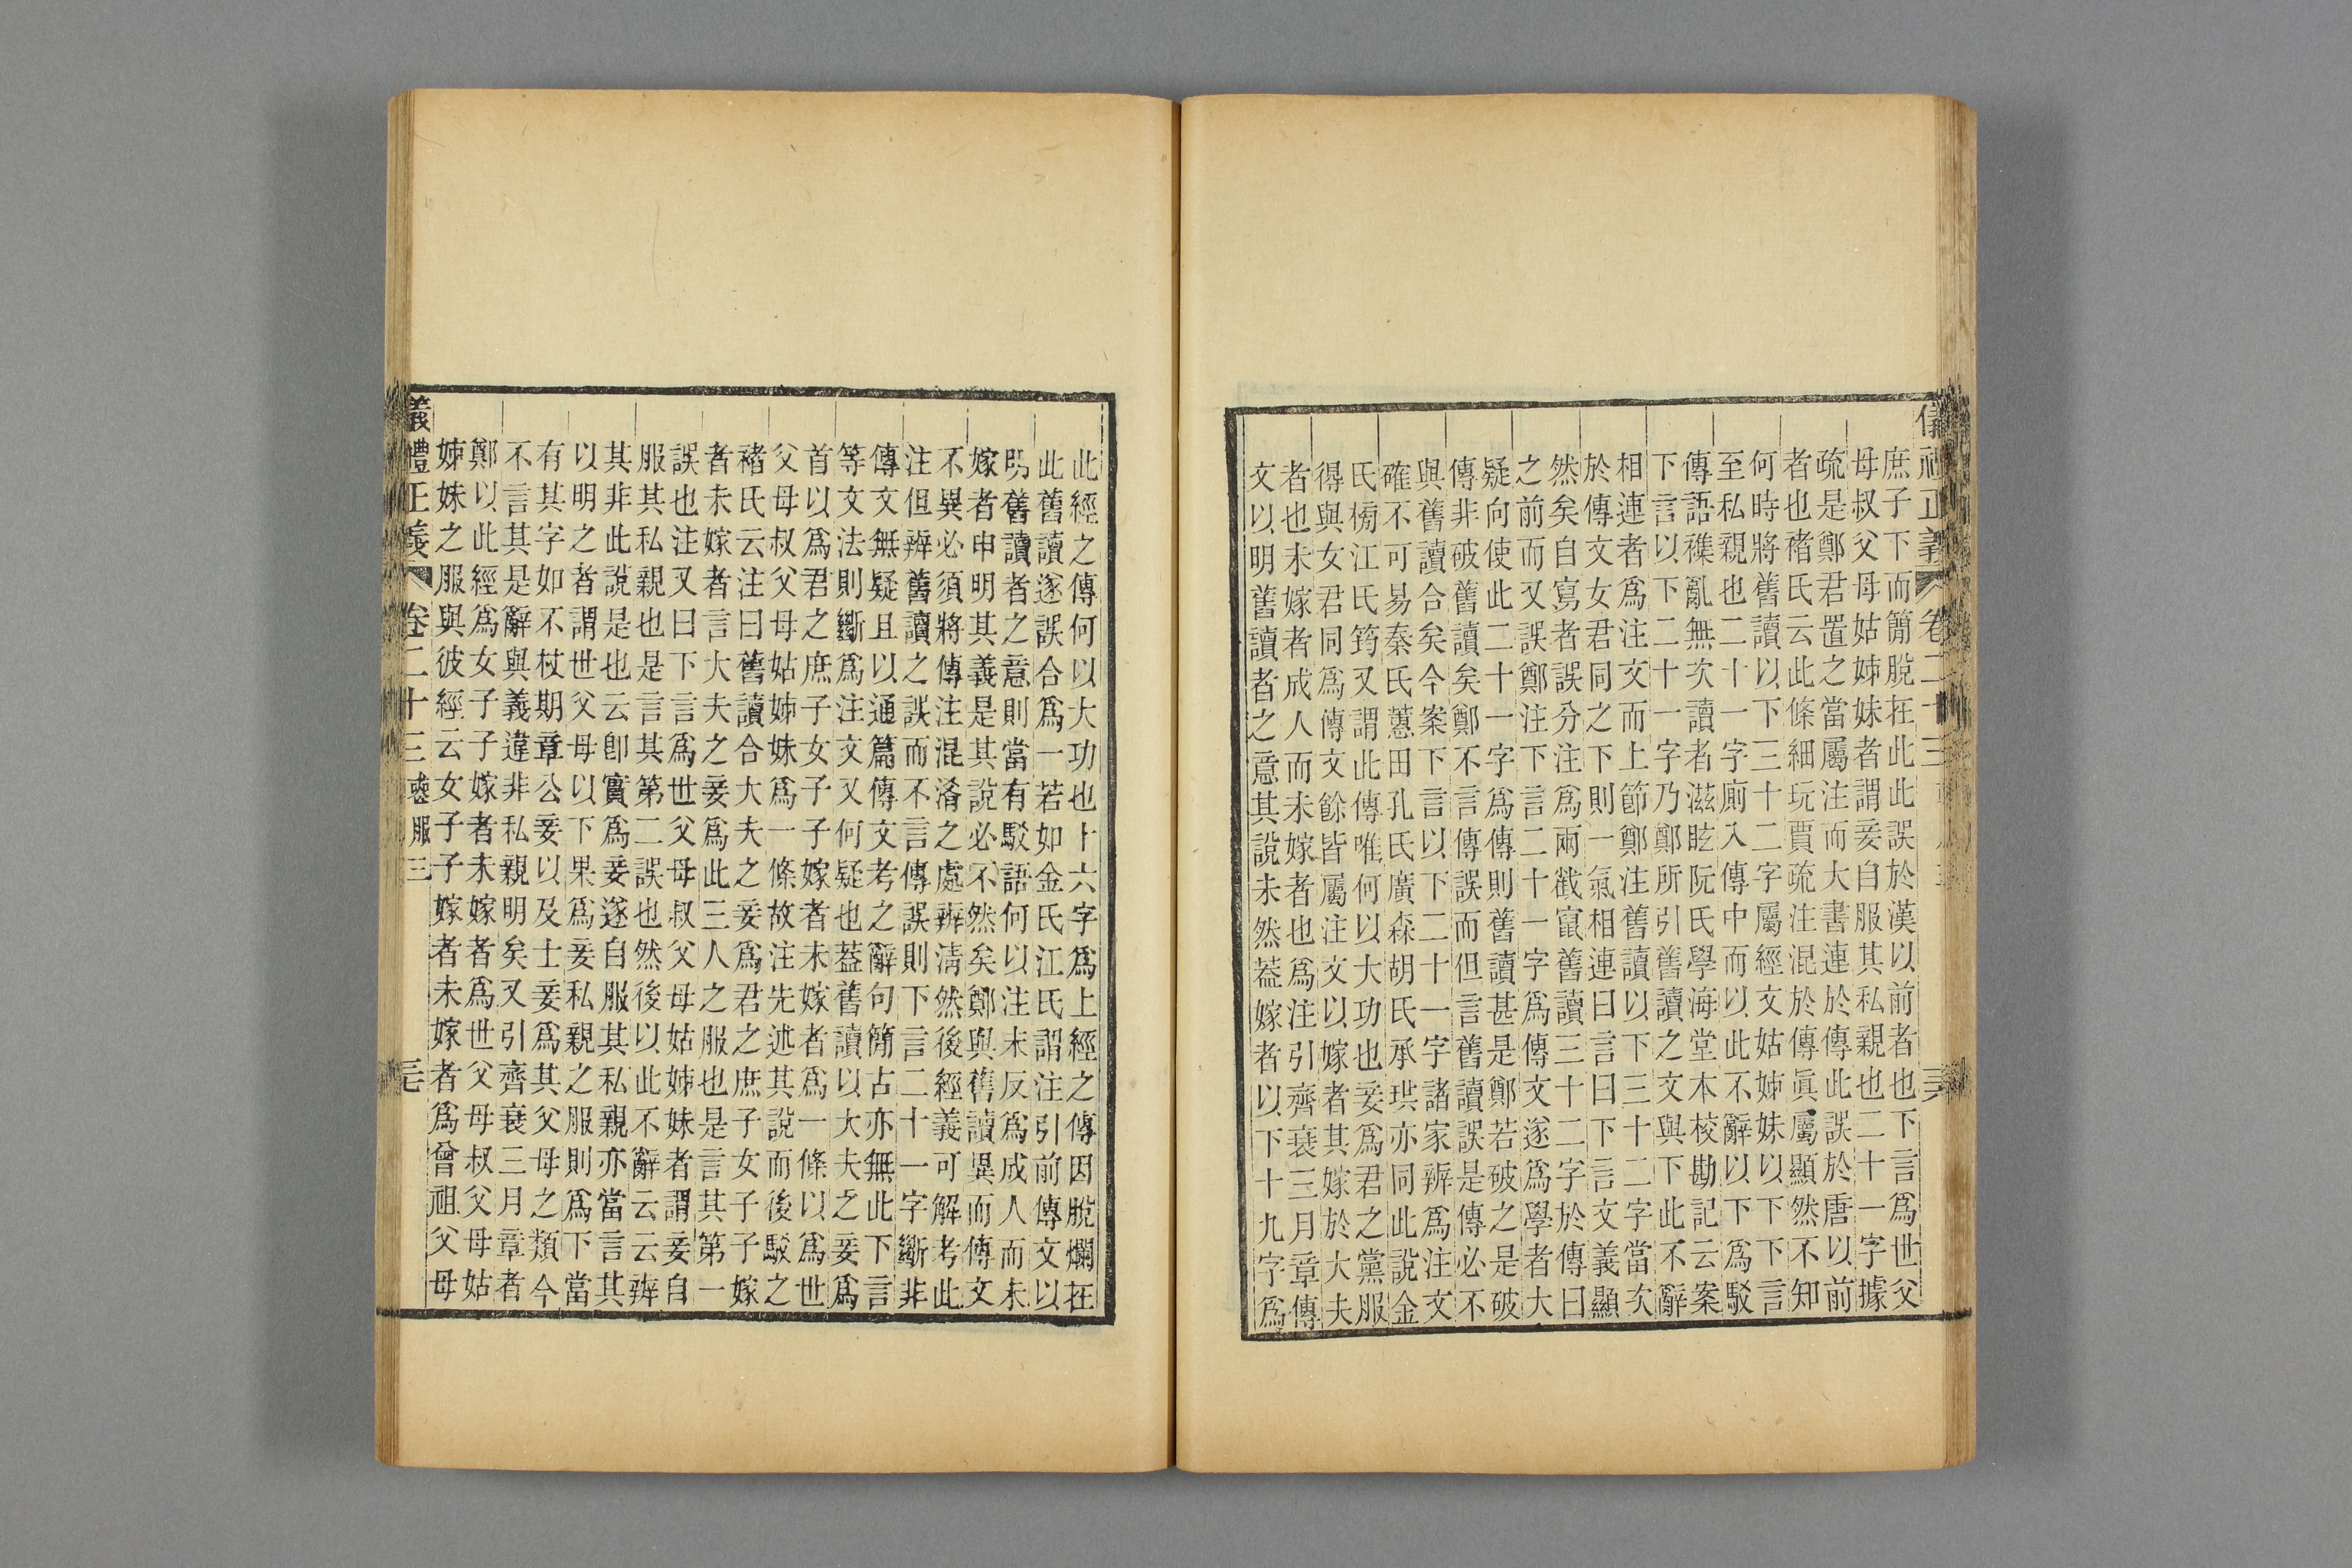 儀禮正義 卷二十三
庶子下而簡脫在此此誤於漢以前者也下言爲世父
母叔父母姑姊妹者謂妾自服其私親也二十一字據
疏是鄭君置之當屬注而大書連於傳此誤於唐以前
者也褚氏云此條細玩賈疏注混於傳眞屬顯然不知
何時將舊讀以下三十二字屬經文姑姊妹以下下言
至私親也二十一字廁入傳中而以此不辭以下爲駁
傳語襍亂無次讀者滋眩阮氏學海堂本校勘記云案
下言以下二十一字乃鄭所引舊讀之文與下此不辭
相連者爲注文而上節鄭注舊讀以下三十二字當次
於傳文女君同之下則一氣相連曰言曰下言文義顯
然矣自寫者誤分注爲兩截竄舊讀三十二字於傳曰
之前而又誤鄭注下言二十一字爲傳文遂爲學者大
疑向使此二十一字爲傳則舊讀甚是鄭若破之是破
傳非破舊讀矣鄭不言傳誤而但言舊讀誤是傳必不
與舊讀合矣今案下言以下二十一字諸家辨爲注文
確不可易秦氏蕙田孔氏廣森胡氏承珙亦同此說金
氏榜江氏筠又謂此傳唯何以大功也妾爲君之黨服
得與女君同爲傳文餘皆屬注文以嫁者其嫁於大夫
者也未嫁者成人而未嫁者也爲注引齊衰三月章傳
文以明舊讀者之意其說未然葢嫁者以下十九字爲
此經之傳何以大功也上六字爲上經之傳因脫爛在
此舊讀遂誤合爲一若如金氏江氏謂注引前傳文以
明舊讀者之意則當有駁語何以注未反爲成人而未
嫁者申明其義是其說必不然矣鄭與舊讀異而傳文
不異必須將傳注混淆之處辨淸然後經義可解考此
注但辨舊讀之誤而不言傳誤則下言二十一字斷非
傳文無疑且以通篇傳文考之辭句簡古亦無此下言
等文法則斷爲注文又何疑也葢舊讀以大夫之妾爲
首以爲君之庶子女子子嫁者未嫁者爲一條以爲世
父母叔父母姑姊妹爲一條故注先述其說而後駁之
褚氏云注曰舊讀合大夫之妾爲君之庶子女子子嫁
者未嫁者言大夫之妾爲此三人之服也是言其第一
誤也注又曰下言爲世父母叔父母姑姊妹者謂妾自
服其私親也是言其第二誤也然後以此不辭云云辨
其非此說是也云卽實爲妾遂自服其私親亦當言其
以明之者謂世父母以下果爲妾私親之服則爲下當
有其字如不杖期章公妾以及士妾爲其父母之類今
不言其是辭與義違非私親明矣又引齊衰三月章者
鄭以此經爲女子子嫁者未嫁者爲世父母叔父母姑
姊妹之服與彼經云女子子嫁者未嫁者爲曾祖父母
儀禮正義 卷二十三 喪服三